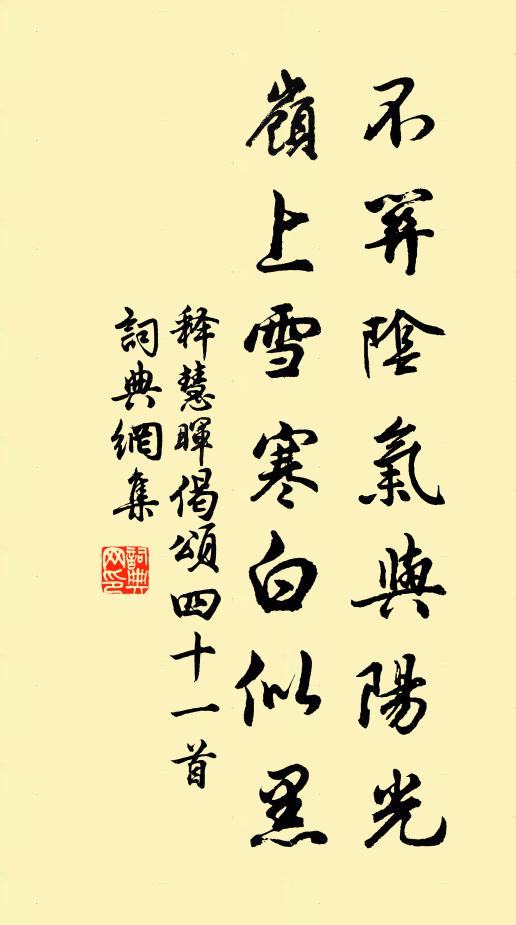 不算陰氣與陽光
嶺上雪寒白似黑
释慧暉偈頌四十一首
詞典網集
詞典网印